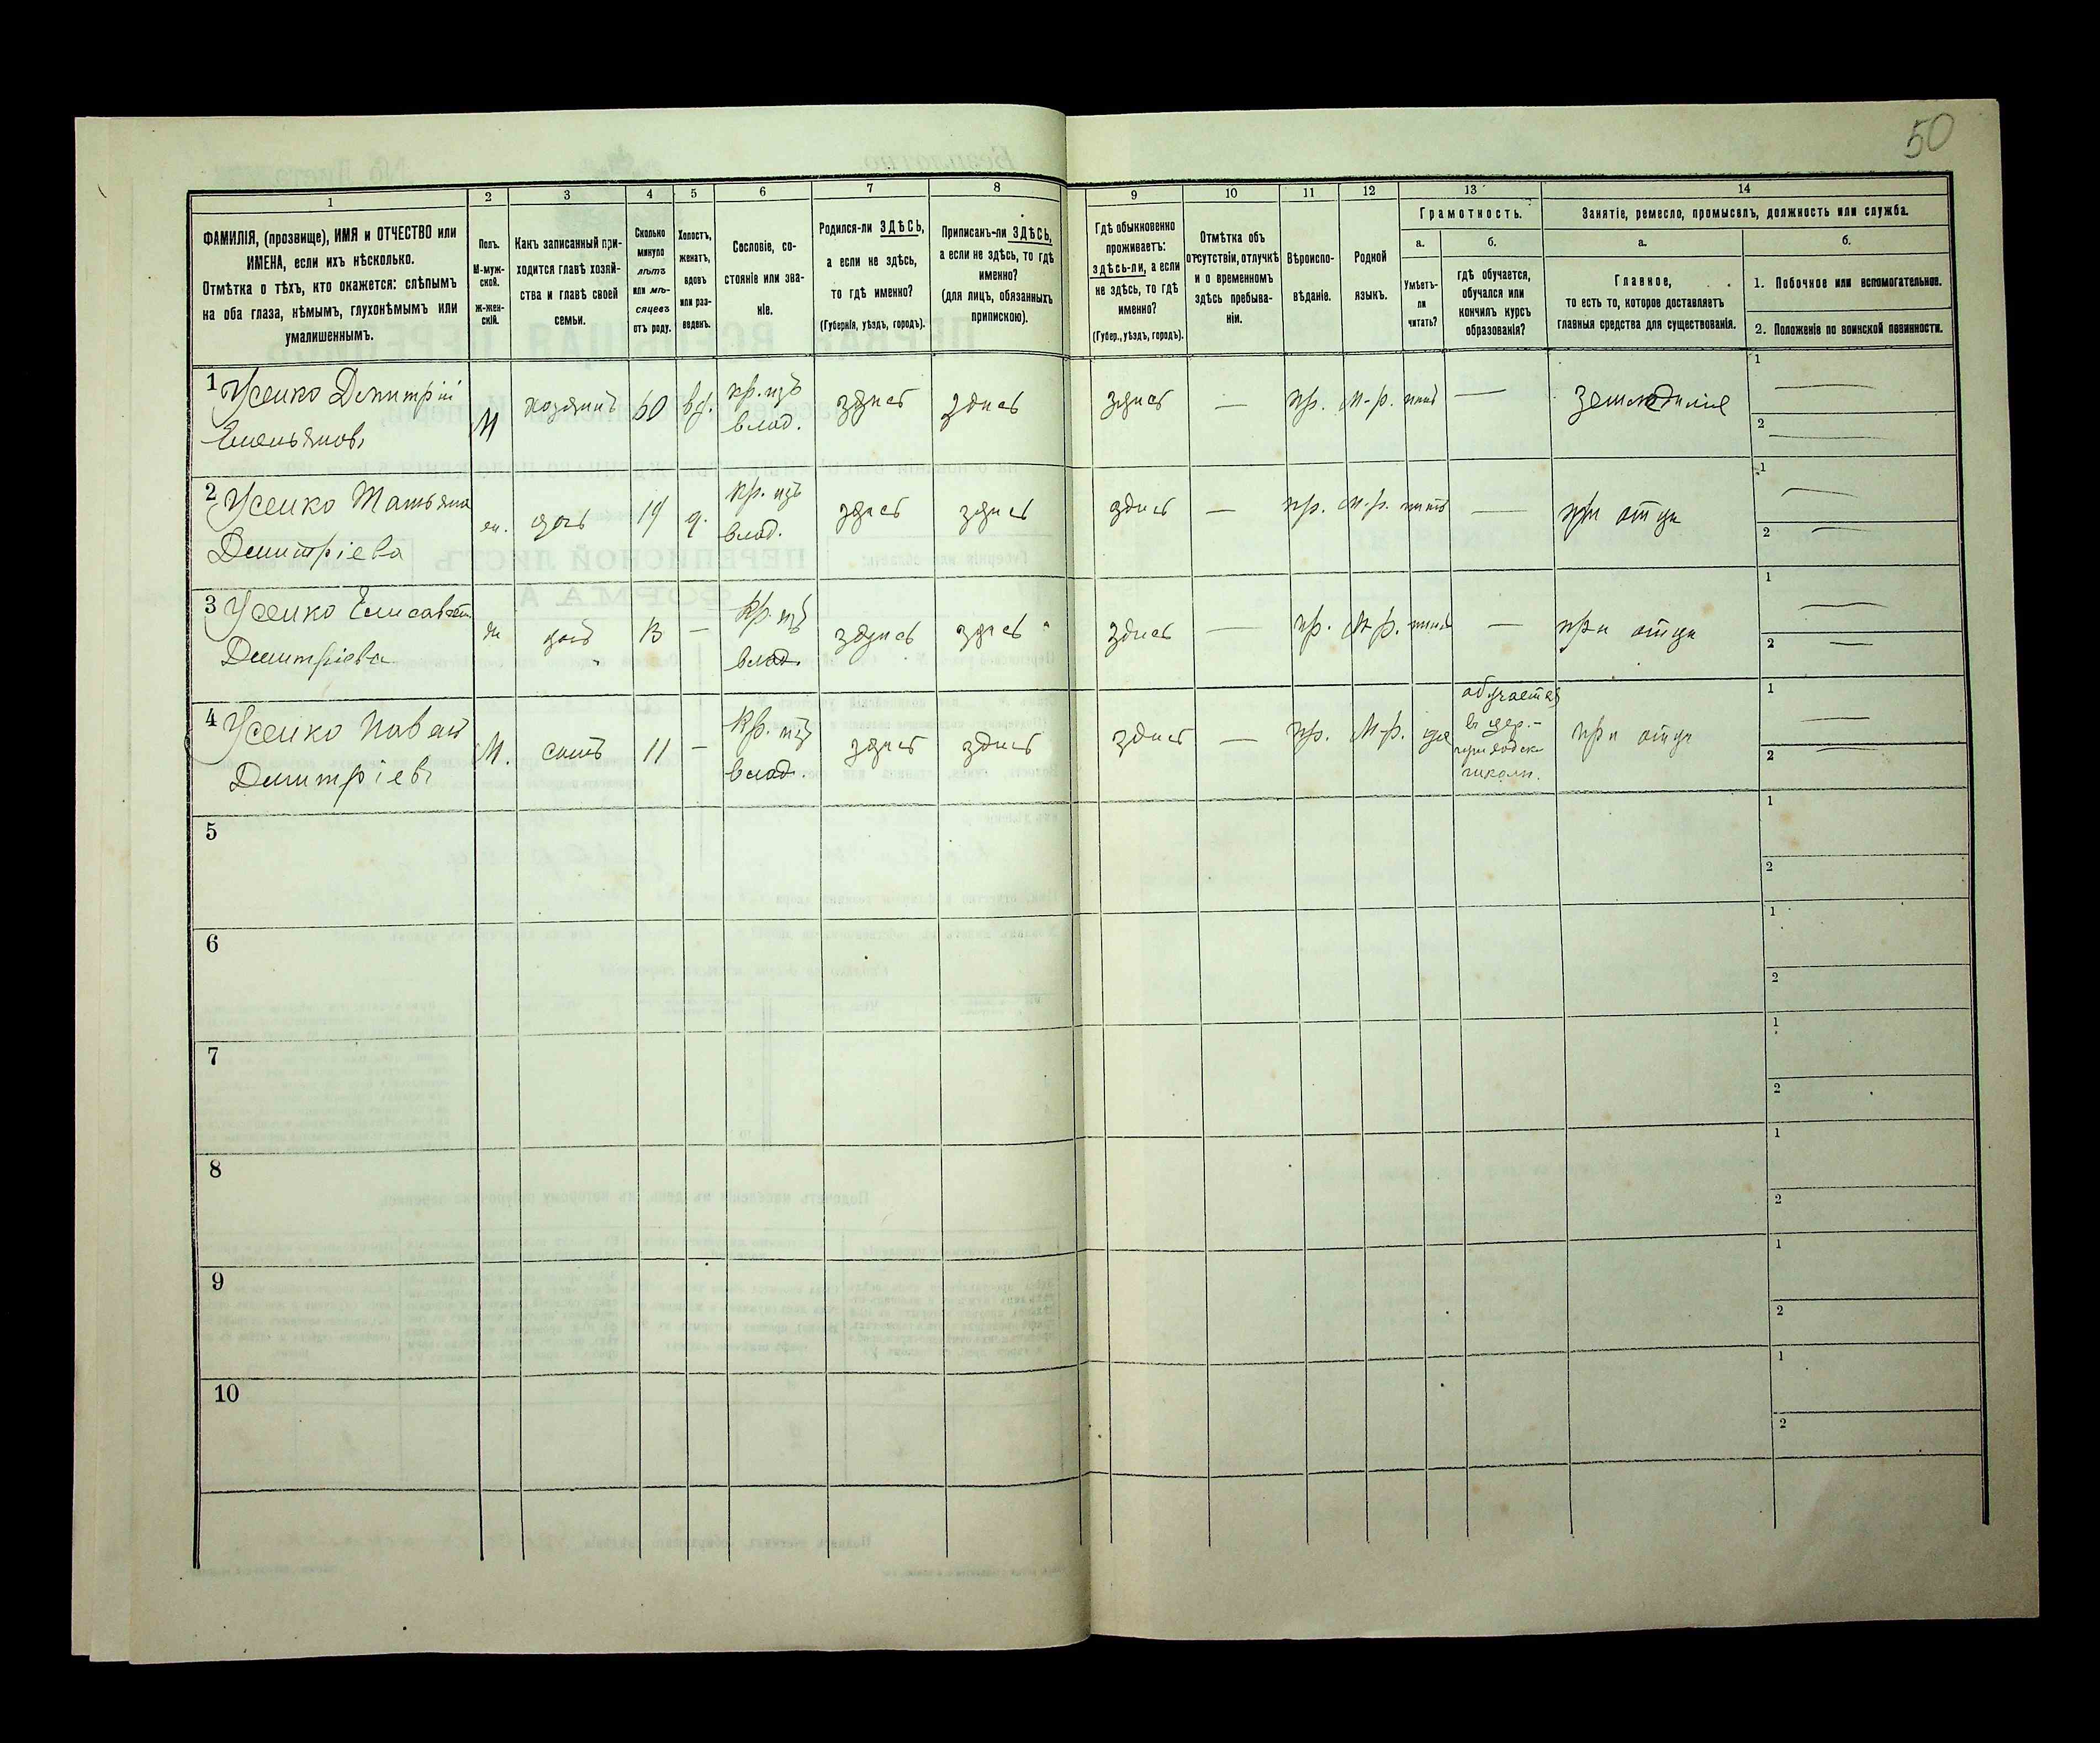 50
1
2
3
4
5
6
7
8
9
10
11
12
13
14
ФАМИЛІЯ, (прозвище), ИМЯ и ОТЧЕСТВО или
ИМЕНА, если ихъ нѣсколько.
Отмѣтка о тѣхъ, кто окажется: слѣпымъ
на оба глаза, нѣмымъ, глухонѣмымъ или
умалишеннымъ.
Полъ.
М-муж-
ской.
Ж-жен-
скій.
Какъ записанный при-
ходится главѣ хозяй-
ства и главѣ своей
семьи.
Сколько
минуло
лѣтъ
или мѣ-
сяцевъ
отъ роду.
Холостъ,
женатъ,
вдовъ
или раз-
веденъ.
Сословіе, со-
стояніе или зва-
ніе.
Родился-ли ЗДѢСЬ,
а если не здѣсь,
то гдѣ именно?
(Губернія, уѣздъ, городъ).
Приписанъ-ли ЗДѢСЬ,
а если не здѣсь, то гдѣ
именно?
(для лицъ, обязанныхъ
припискою).
Гдѣ обыкновенно
проживаетъ:
здѣсь-ли, а если
не здѣсь, то гдѣ
именно?
(Губер., уѣздъ, городъ).
Отмѣтка объ
отсутствіи, отлучкѣ
и о временномъ
здѣсь пребыва-
ніи.
Вѣроиспо-
вѣданіе.
Родной
языкъ.
Грамотность.
а.
Умѣетъ-
ли
читать?
б.
гдѣ обучается,
обучался или
кончилъ курсъ
образованія?
Занятіе, ремесло, промыселъ, должность или служба.
а.
Главное,
то есть то, которое доставляетъ
главныя средства для существованія.
б.
1. Побочное или вспомогательное.
2. Положеніе по воинской повинности.
1 Усенко Дмитрій
Емельяновъ
М хозяинъ 60 вд. кр. изъ
влад.
здѣсь здѣсь здѣсь — пр. М-р. нѣтъ — земледѣліе
1 —
2 —
2 Усенко Татьяна
Дмитріева
ж. дочь 19 д. кр. изъ
влад.
здѣсь здѣсь здѣсь — пр. М-р. нѣтъ — при отцѣ
1 —
2 —
3 Усенко Елисавета
Дмитріева
ж дочь 13 — Кр. изъ
влад.
здѣсь здѣсь здѣсь — пр. М-р. нѣтъ — при отцѣ
1 —
2 —
4 Усенко Павелъ
Дмитріевъ
М. сынъ 11 — Кр. изъ
влад.
здѣсь здѣсь здѣсь — пр. М-р. да
обучается
въ цер.-
приходск.
школѣ.
при отцѣ
1 —
2 —
5
1
2
6
1
2
7
1
2
8
1
2
9
1
2
10
1
2